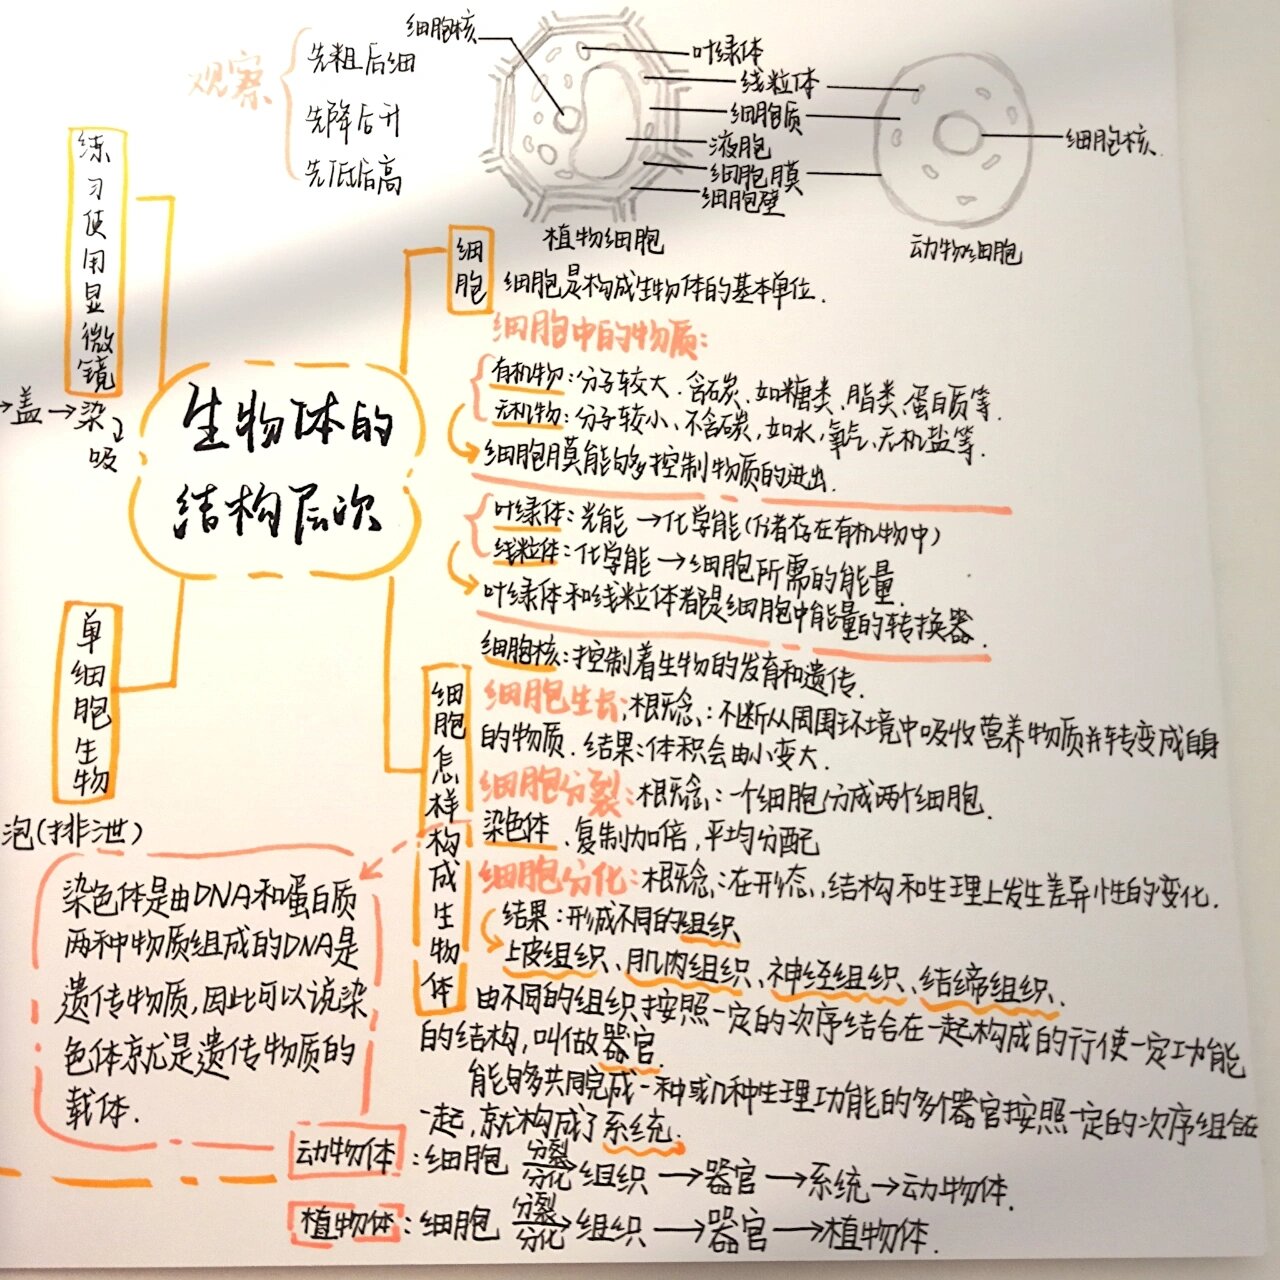 观察
先粗后细
先降后升
先低后高
细胞核
叶绿体
线粒体
细胞质
液胞
细胞膜
细胞壁
细胞核
植物细胞
动物细胞
练习使用显微镜
→盖→染
吸
生物体的
结构层次
细胞
细胞是构成生物体的基本单位.
细胞中的物质:
有机物:分子较大.含碳,如糖类、脂类、蛋白质等.
无机物:分子较小、不含碳,如水,氧气、无机盐等.
细胞膜能够控制物质的进出.
叶绿体:光能→化学能(储存在有机物中)
线粒体:化学能→细胞所需的能量.
叶绿体和线粒体都是细胞中能量的转换器.
细胞核:控制着生物的发育和遗传.
单细胞生物
泡(排泄)
细胞怎样构成生物体
细胞生长:概念:不断从周围环境中吸收营养物质并转变成自身
的物质.结果:体积会由小变大.
细胞分裂:概念:一个细胞分成两个细胞.
染色体、复制加倍,平均分配
细胞分化:概念:在形态,结构和生理上发生差异性的变化.
结果:形成不同的组织
上皮组织、肌肉组织、神经组织、结缔组织.
由不同的组织按照一定的次序结合在一起构成的行使一定功能
的结构,叫做器官.
能够共同完成一种或几种生理功能的多个器官按照一定的次序组合在
一起,就构成了系统.
染色体是由DNA和蛋白质
两种物质组成的DNA是
遗传物质,因此可以说染
色体就是遗传物质的
载体.
动物体:细胞 分裂分化→组织→器官→系统→动物体.
植物体:细胞 分裂分化→组织→器官→植物体.